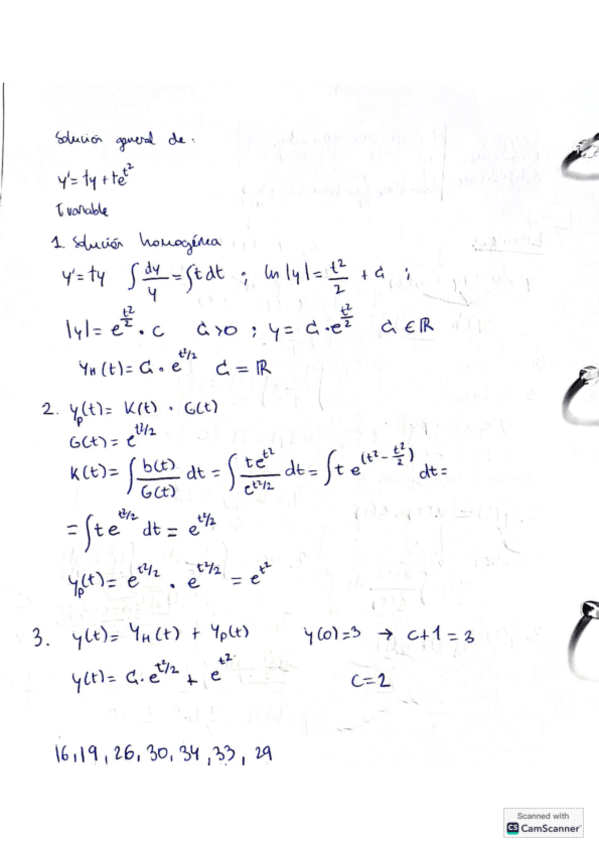 Solución general de:
y' = ty + te^{t^2}
t variable
1. Solución homogénea
y' = ty ∫ dy/y = ∫ t dt ; ln |y| = t^2/2 + C ;
|y| = e^{t^2/2} · c C > 0 ; y = C · e^{t^2/2} C ∈ ℝ
Y_H(t) = C · e^{t^2/2} C = ℝ
2. y_p(t) = K(t) · G(t)
G(t) = e^{t^2/2}
K(t) = ∫ b(t)/G(t) dt = ∫ te^{t^2}/e^{t^2/2} dt = ∫ t e^{(t^2 - t^2/2)} dt =
= ∫ t e^{t^2/2} dt = e^{t^2/2}
y_p(t) = e^{t^2/2} · e^{t^2/2} = e^{t^2}
3. y(t) = Y_H(t) + Y_p(t) y(0) = 3 → C + 1 = 3
y(t) = C · e^{t^2/2} + e^{t^2} C = 2
16, 19, 26, 30, 34, 33, 29
Scanned with
CS CamScanner